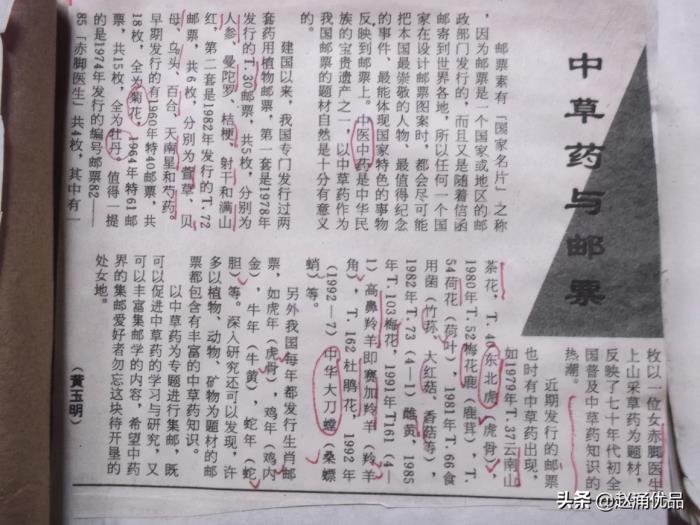 中草药与邮票
邮票素有「国家名片」之称
，因为邮票是一个国家或地区的邮
政部门发行的，而且又是随着信函
邮寄到世界各地，所以任何一个国
家在设计邮票图案时，都会尽可能
把本国最崇敬的人物、最值得纪念
的事件、最能体现国家特色的事物
反映到邮票上。中医中药是中华民
族的宝贵遗产之一，以中草药作为
我国邮票的题材自然是十分有意义
的。
建国以来，我国专门发行过两
套药用植物邮票，第一套是1978年
发行的T.30邮票，共5枚，分别为
人参、曼陀罗、桔梗、射干和满山
红，第二套是1982年发行的T.72
邮票，共6枚，分别为萱草、贝
母、乌头、百合、天南星和芍药。
早期发行的有1960年特40邮票，共
18枚，全为菊花，1964年特61邮
票，共15枚，全为牡丹。值得一提
的是1974年发行的编号邮票82——
85「赤脚医生」共4枚，其中有一
枚以一位女赤脚医生
上山采草药为题材，
反映了七十年代初全
国普及中草药知识的
热潮。
近期发行的邮票
也时有中草药出现，
如1979年T.37云南山
茶花，T.40东北虎（虎骨），
1980年T.52梅花鹿（鹿茸），T.
54荷花（荷叶），1981年T.66食
用菌（竹荪、大红菇、香菇等），
1982年T.73（4—1）雌黄，1985
年T.103梅花，1991年T161（4—
1）高鼻羚羊即赛加羚羊（羚羊
角），T.162杜鹃花，1992年
（1992—7）中华大刀螳（桑螵
蛸）等。
另外我国每年都发行生肖邮
票，如虎年（虎骨），鸡年（鸡内
金），牛年（牛黄），蛇年（蛇
胆）等。深入研究还可以发现，许
多以植物、动物、矿物为题材的邮
票都包含有丰富的中草药知识。
以中草药为专题进行集邮，既
可以促进中草药的学习与研究，又
可以丰富集邮学的内容，希望中药
界的集邮爱好者勿忘这块待开垦的
处女地。
（黄玉明）
头条 @赵涌优品